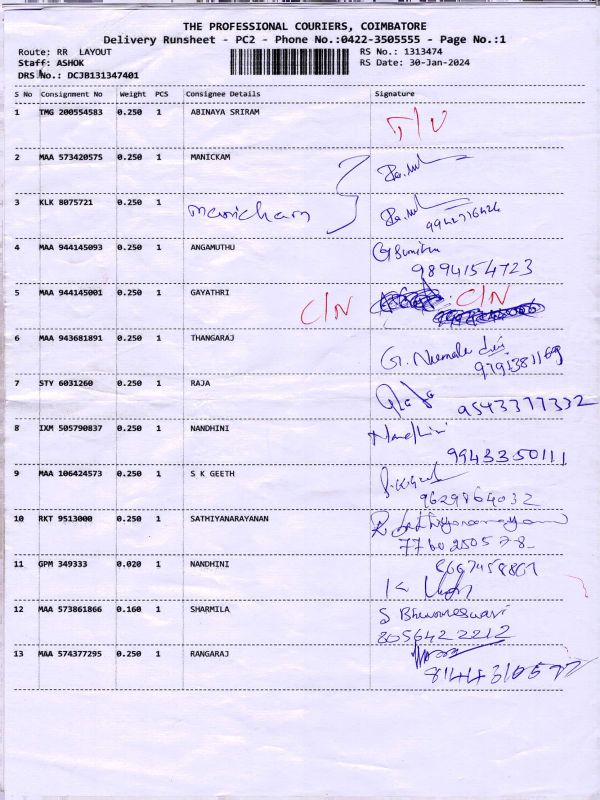 THE PROFESSIONAL COURIERS, COIMBATORE
Delivery Runsheet - PC2 - Phone No.:0422-3505555 - Page No.:1
Route: RR LAYOUT RS No.: 1313474
Staff: ASHOK RS Date: 30-Jan-2024
DRS No.: DCJB131347401
S No Consignment No Weight PCS Consignee Details Signature
1 TMG 200554583 0.250 1 ABINAYA SRIRAM
2 MAA 573420575 0.250 1 MANICKAM
3 KLK 8075721 0.250 1 manickam
4 MAA 944145093 0.250 1 ANGAMUTHU
9894154723
5 MAA 944145001 0.250 1 GAYATHRI C/N C/N
6 MAA 943681891 0.250 1 THANGARAJ
9791381169
7 STY 6031260 0.250 1 RAJA
9543377332
8 IXM 505790837 0.250 1 NANDHINI Nandhini
9943350111
9 MAA 106424573 0.250 1 S K GEETH
9629864032
10 RKT 9513000 0.250 1 SATHIYANARAYANAN
11 GPM 349333 0.020 1 NANDHINI
12 MAA 573861866 0.160 1 SHARMILA S Bhuvaneswari
8056422212
13 MAA 574377295 0.250 1 RANGARAJ